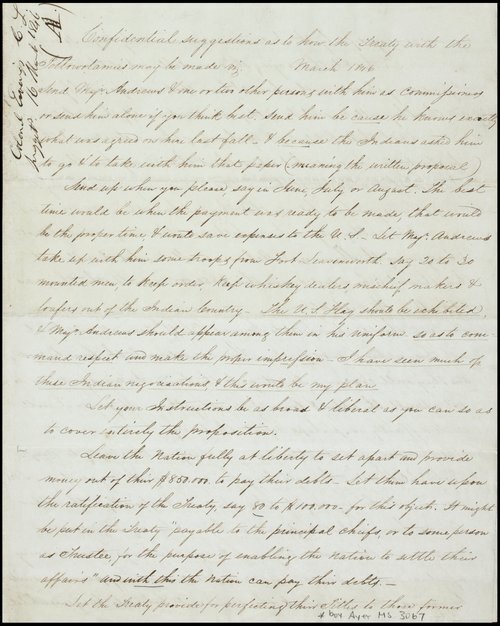 Colonel Ewing's C. L.
Suggests 16 March 1846
Confidential suggestions as to how the Treaty with the
Pottowotamies may be made viz March 1846
Send Majr. Andrews & one or two other persons with him as commissioners
or send him alone if you think best. Send him be cause he knows exactly
what was agreed on here last fall - & because the Indians asked him
to go & to take with him that paper (meaning the written proposal)
Send up when you please, say in June, July or August. The best
time would be when the payment was ready to be made, that would
be the proper time & would save expenses to the U. S - Let Majr. Andrews
take up with him some troops from Fort Leavenworth say 20 to 30
mounted men to keep order, keep whiskey dealers, mischief makers &
loafers out of the Indian Country - The U. S. Flag should be exhibited,
& Majr. Andrews should appear among them in his Uniform so as to com-
mand respect and make the proper impression - I have seen much of
these Indian negociations & this would be my plan
Let your Instructions be as broad & liberal as you can so as
to cover entirely the proposition.
Leave the Nation fully at liberty to set apart and provide
money out of their $850.000 to pay their debts - Let them have upon
the ratification of the Treaty, say 80 to $100.000 - for this object. It might
be put in the Treaty "payable to the principal chiefs, or to some person
as Trustee, for the purpose of enabling the Nation to settle their
affairs" and with this the Nation can pay their debts. -
Let the Treaty provide for perfecting their Titles to those former
* box Ayer MS 3067